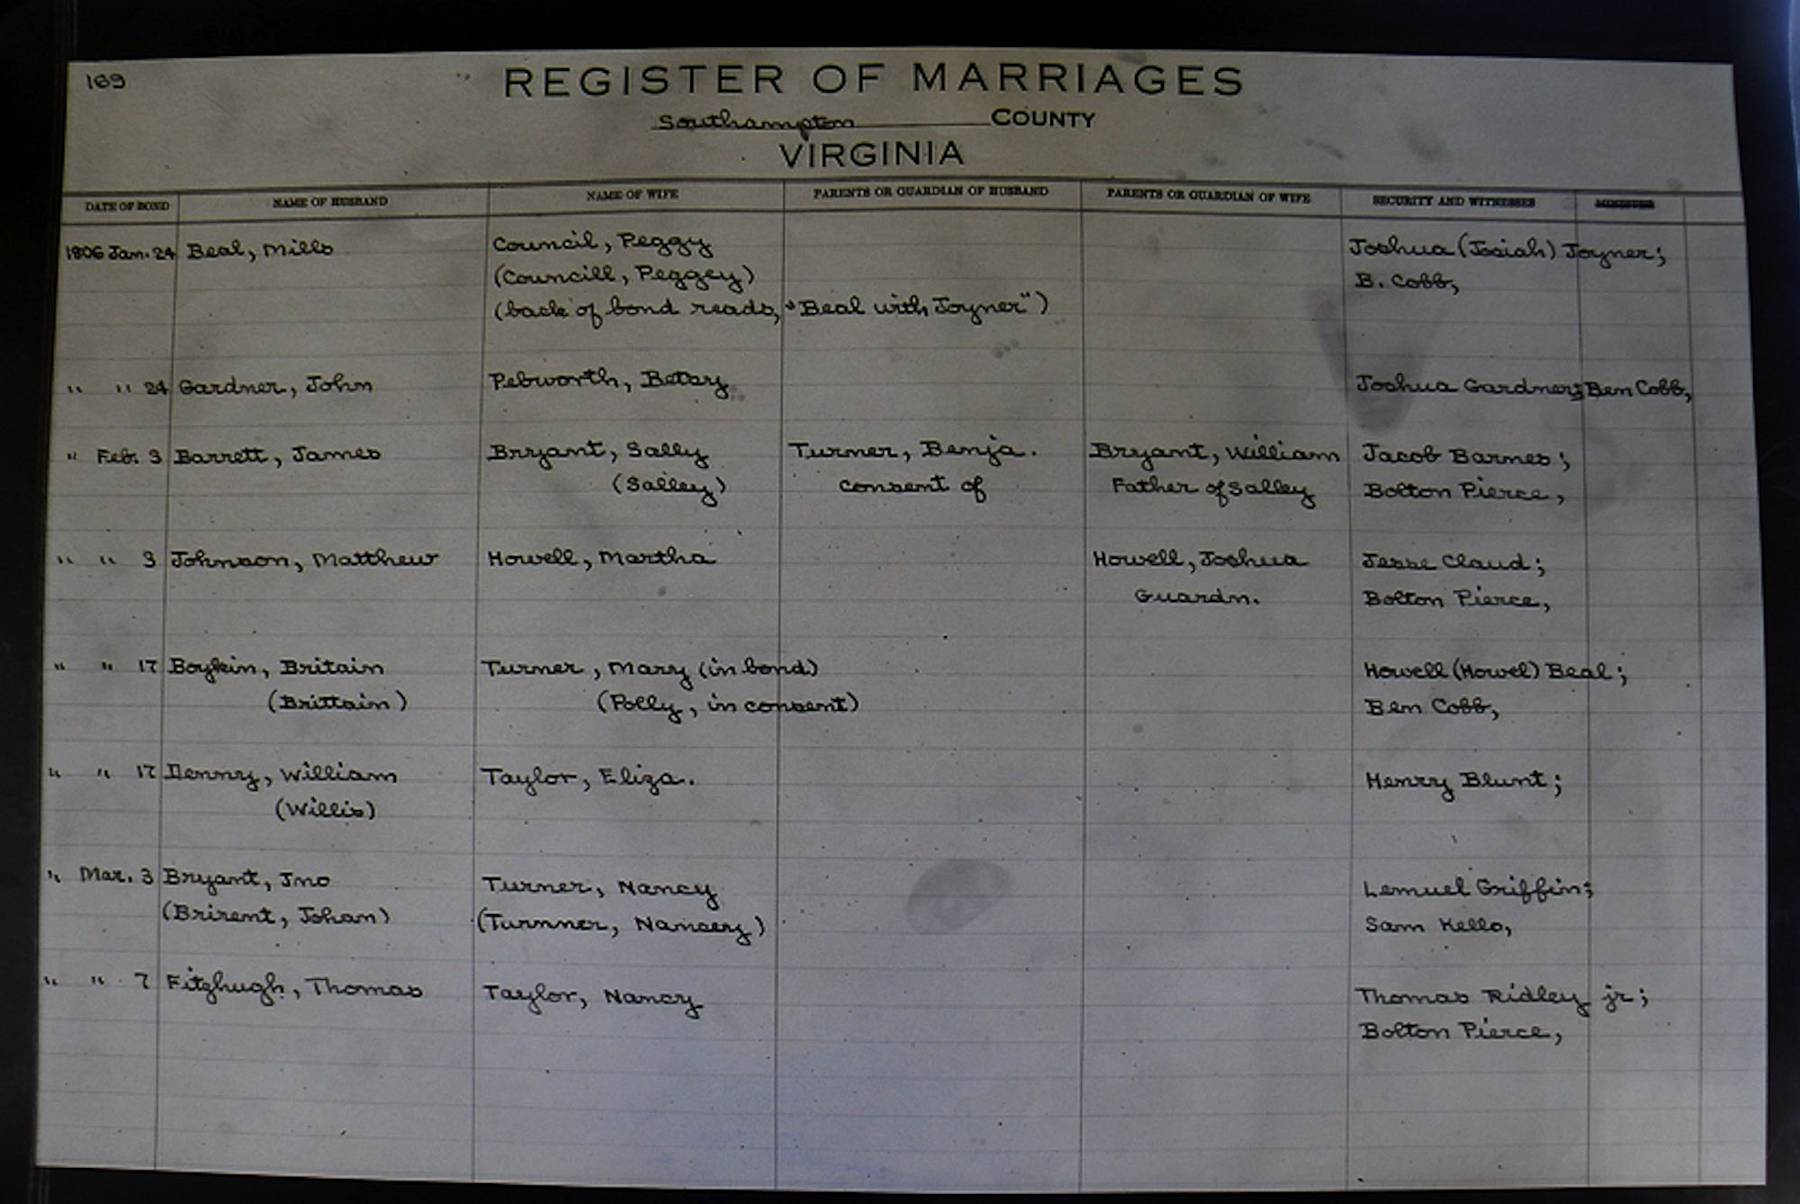 169
REGISTER OF MARRIAGES
Southampton COUNTY
VIRGINIA
DATE OF BOND NAME OF HUSBAND NAME OF WIFE PARENTS OR GUARDIAN OF HUSBAND PARENTS OR GUARDIAN OF WIFE SECURITY AND WITNESSES MINISTER
1806 Jan. 24 Beal, Mills Council, Peggy Joshua (Josiah) Joyner;
(Councill, Peggey) B. Cobb,
(back of bond reads, "Beal with Joyner")
" " 24 Gardner, John Pebworth, Betsy Joshua Gardner; Ben Cobb,
" Feb. 3 Barrett, James Bryant, Sally Turner, Benja. Bryant, William Jacob Barnes;
(Salley) consent of Father of Salley Bolton Pierce,
" " 3 Johnson, Matthew Howell, Martha Howell, Joshua Jesse Claud;
Guardn. Bolton Pierce,
" " 17 Boykin, Britain Turner, Mary (in bond) Howell (Howel) Beal;
(Brittain) (Polly, in consent) Ben Cobb,
" " 17 Denny, William Taylor, Eliza. Henry Blunt;
(Willis)
" Mar. 3 Bryant, Jno Turner, Nancy Lemuel Griffin;
(Brirent, Johan) (Turnner, Nancery) Sam Kello,
" " 7 Fitzhugh, Thomas Taylor, Nancy Thomas Ridley jr;
Bolton Pierce,